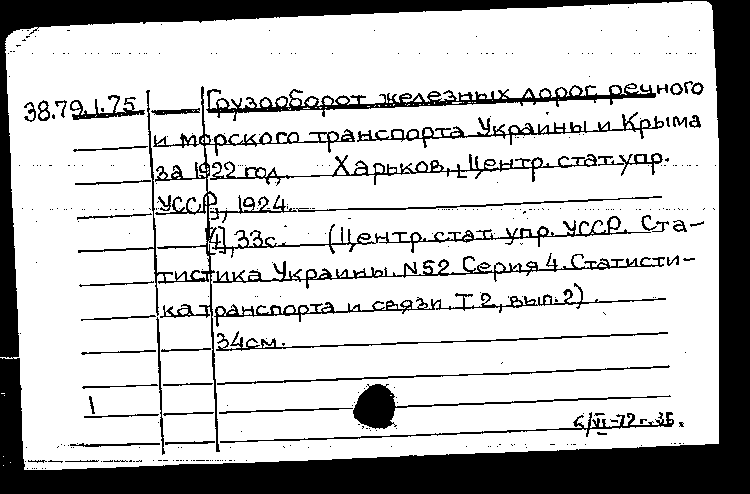 38.79.1.75 Грузооборот железных дорог, речного
и морского транспорта Украины и Крыма
за 1922 год. Харьков, Центр. стат. упр.
УССР, 1924.
[4], 33с. (Центр. стат. упр. УССР. Ста-
тистика Украины. N52. Серия 4. Статисти-
ка транспорта и связи. Т. 2, вып. 2)
34см.
1
6/VI-72 г.